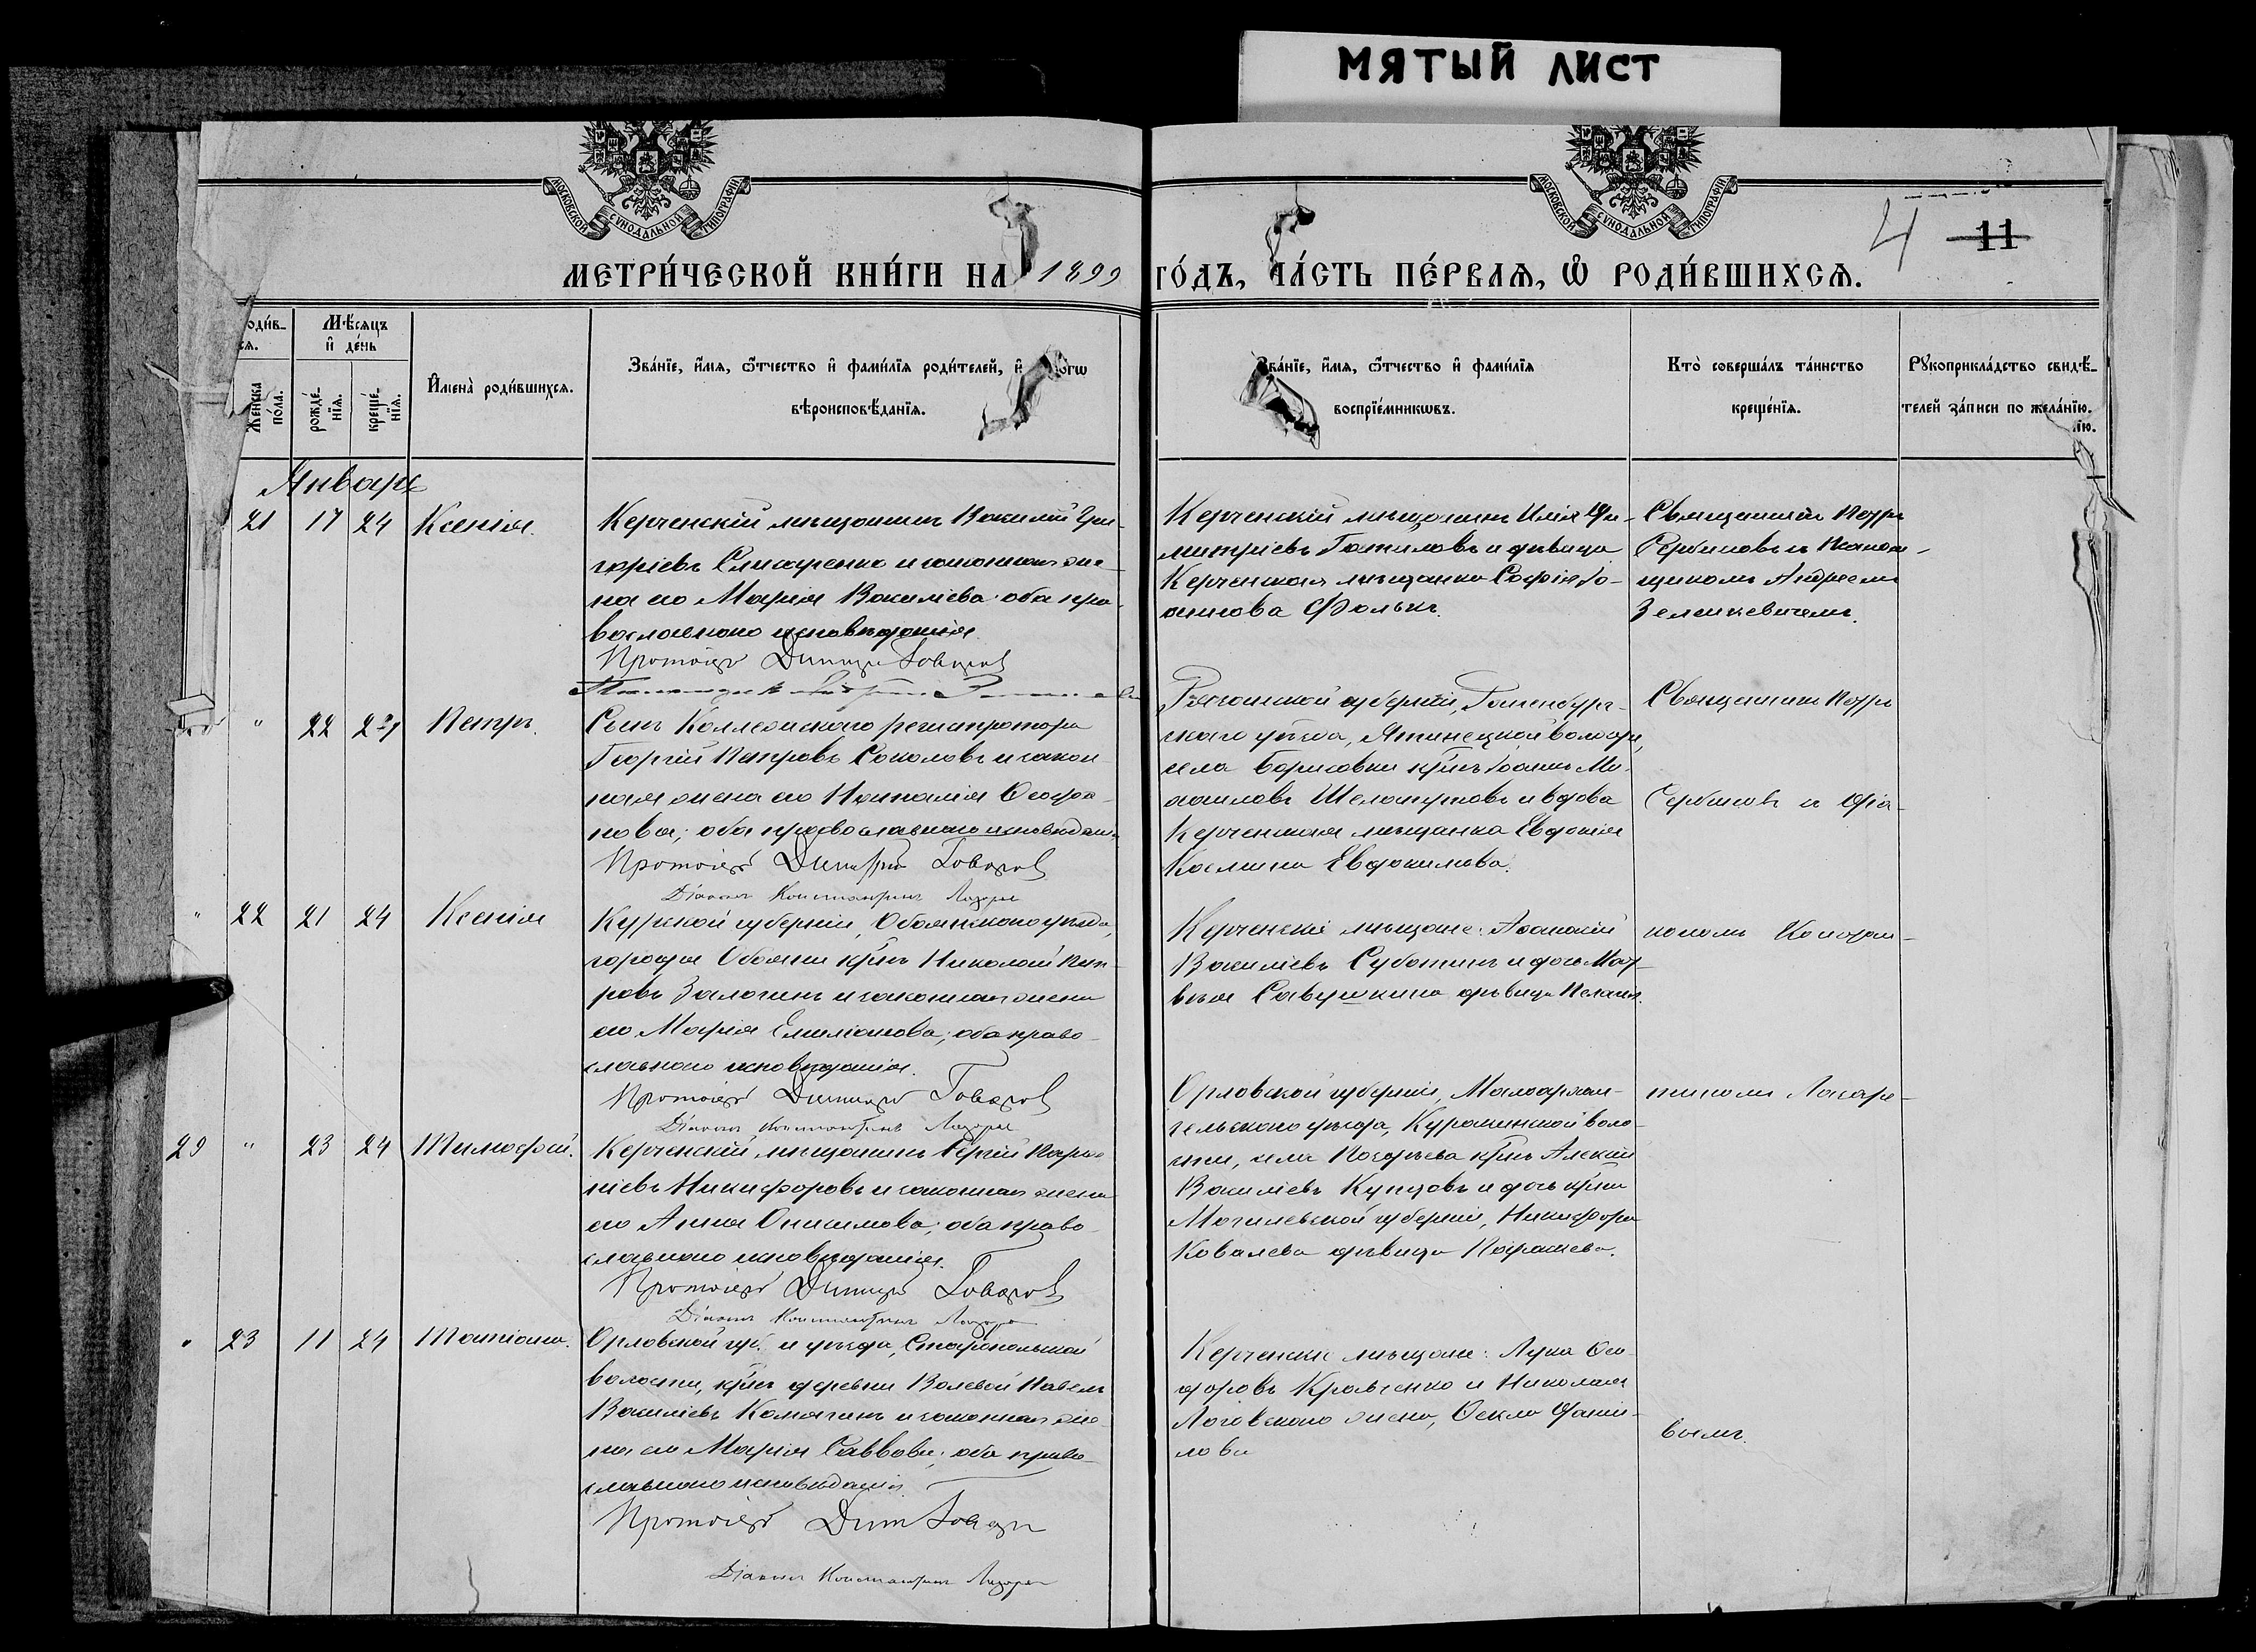 МЯТЫЙ ЛИСТ
МОСКОВСКОЙ СѴНОДАЛЬНОЙ ТИПОГРАФІИ
МОСКОВСКОЙ СѴНОДАЛЬНОЙ ТИПОГРАФІИ
4 11
МЕТРИ́ЧЕСКОЙ КНИ́ГИ НА 1899
ГО́ДЪ, ЧА́СТЬ ПЕ́РВАЯ, Ѡ҆ РОДИ́ВШИХСЯ.
Мѣ́сяцъ и҆ де́нь
Же́нска по́ла.
рожде́нїя.
креще́нїя.
И҆мена̀ роди́вшихся.
Зва́нїе, и҆́мя, ѻ҆́тчество и҆ фами́лїя роди́телей, и҆
вѣроисповѣ́данїя.
Зва́нїе, и҆́мя, ѻ҆́тчество и҆ фами́лїя
воспрїе́мникѡвъ.
Кто̀ соверша́лъ та́инство
креще́нїя.
Рꙋкоприкла́дство свидѣ́-
телей за́писи по жела́нїю.
Январь
21 17 24 Ксенія.
Керченскій мѣщанинъ Василій Гри-
горіевъ Слисаренко и законная же-
на его Марія Васильева; оба пра-
вославнаго исповѣданія.
Протоіерей Димитрій Говоров
Керченскій мѣщанинъ Илія Ди-
митріевъ Гаташовъ и дѣвица
Керченская мѣщанка Софія Іо-
аннова Фольки.
Священникъ Петръ
Сербиновъ съ Псалом-
щикомъ Андреемъ
Зеленкевичемъ.
" 22 24 Петръ.
Сынъ Коллежскаго регистратора
Георгій Петровъ Соколовъ и закон-
ная жена его Наталія Осифо-
нова; оба православнаго исповѣдан.
Протоіерей Димитрій Говоров
Діаконъ Константинъ Лазарев
губерніи, Раненбург-
скаго уѣзда, волости,
села Борисовки кр‑нъ Іоаннъ Ми-
хаиловъ Шелопутовъ и вдова
Керченская мѣщанка Евдокія
Косьмина Евдокимова.
Священникъ Петръ
Сербиновъ съ Діа-
" 22 21 24 Ксенія
Курской губерніи, Обоянскаго уѣзда,
города Обояни кр‑нъ Николай Пет-
ровъ Залогинъ и законная жена
его Марія Емиліанова; оба право-
славнаго исповѣданія.
Протоіерей Димитрій Говоров
Діаконъ Константинъ Лазарев
Керченскіе мѣщане: Аѳанасій
Василіевъ Суботинъ и дочь Мат-
вѣя Савушкина дѣвица Пелагія.
кономъ Констан-
29 " 23 24 Тимоѳей.
Керченскій мѣщанинъ Сергій Парѳе-
ніевъ Никифоровъ и законная жена
его Анна Онисимова; оба право-
славнаго исповѣданія.
Протоіерей Димитрій Говоров
Діаконъ Константинъ Лазарев
Орловской губерніи, Малоархан-
гельскаго уѣзда, Куракинской воло-
сти, села кр‑нъ Алексій
Василіевъ Купцовъ и дочь кр‑на
Могилевской губерніи, Никифора
Ковалева дѣвица Параскева.
тиномъ Лазаре-
" 23 11 24 Татіана.
Орловской губ. и уѣзда,
волости, кр‑нъ деревни Волевой Павелъ
Василіевъ Комягинъ и законная же-
на его Марія Саввова; оба право-
славнаго исповѣданія.
Протоіерей Дим Говоров
Діаконъ Константинъ Лазарев
Керченскіе мѣщане: Лука Ѳео-
доровъ Кравченко и Николая
Логовскаго жена, Ѳекла Дани-
лова
вымъ.